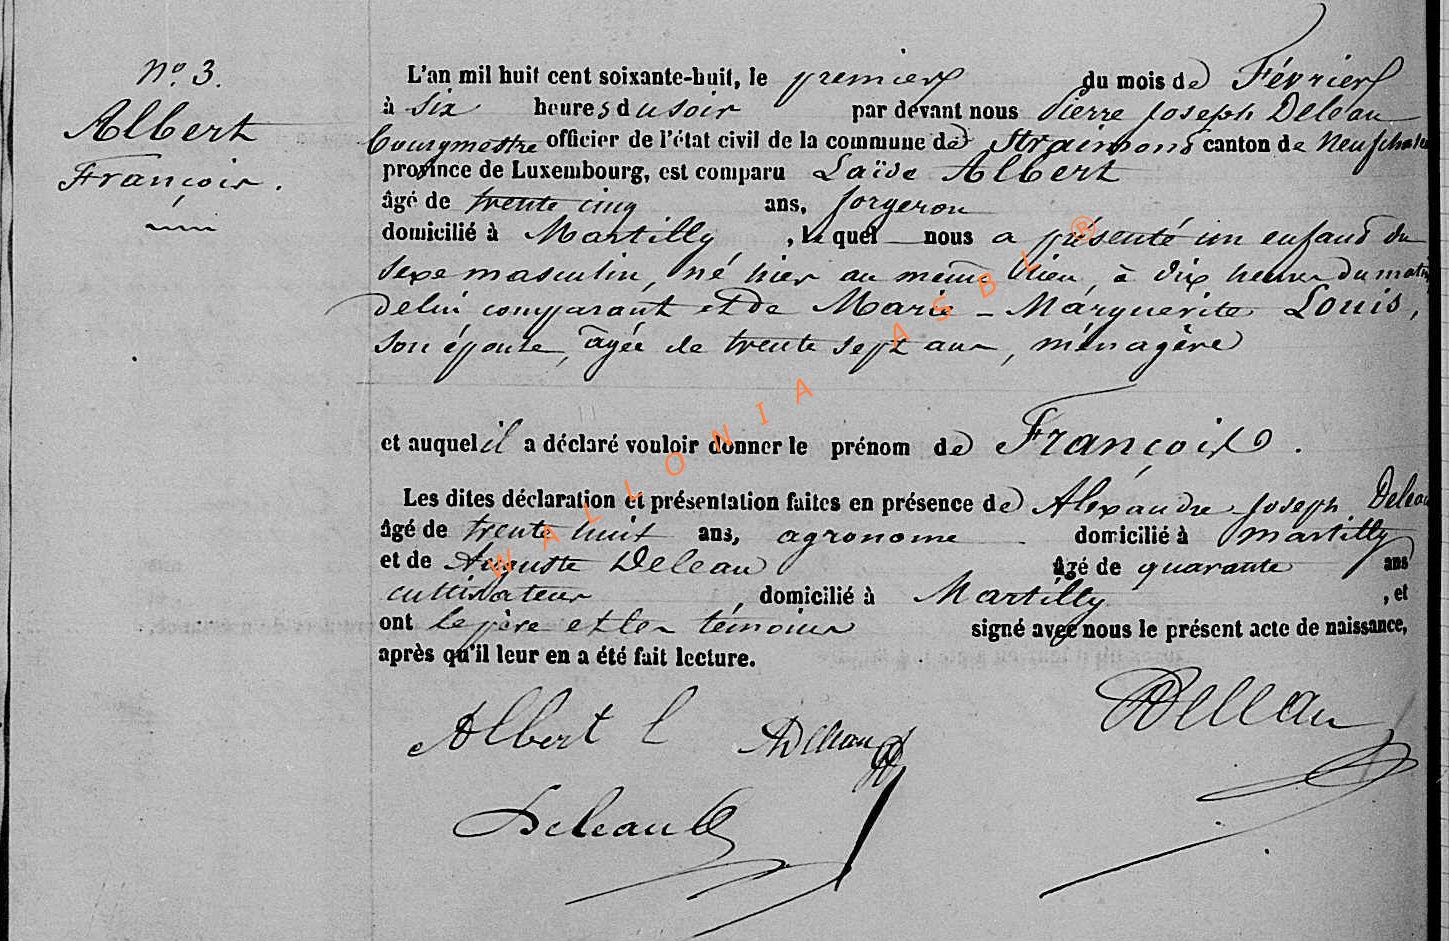 N° 3.
Albert
François.
L'an mil huit cent soixante-huit, le premier du mois de Février
à six heures du soir par devant nous Pierre Joseph Deleau
bourgmestre officier de l'état civil de la commune de Straimont canton de Neufchateau
province de Luxembourg, est comparu Laïde Albert
âgé de trente cinq ans, forgeron
domicilié à Martilly, lequel nous a présenté un enfant du
sexe masculin, né hier au même lieu, à dix heures du matin
de lui comparant et de Marie-Marguerite Louis,
son épouse, âgée de trente sept ans, ménagère
et auquel il a déclaré vouloir donner le prénom de François.
Les dites déclaration et présentation faites en présence de Alexandre Joseph Deleau
âgé de trente huit ans, agronome domicilié à Martilly
et de Auguste Deleau âgé de quarante ans
cultivateur, domicilié à Martilly, et
ont le père et les témoins signé avec nous le présent acte de naissance,
après qu'il leur en a été fait lecture.
Albert L ADeleau Deleau
Deleau
WALLONIA ASBL ®